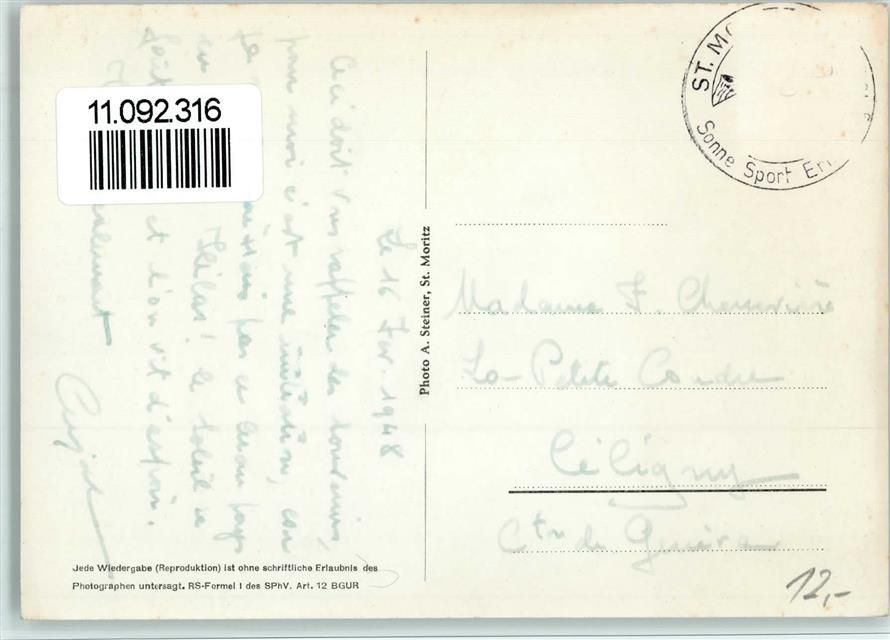 11.092.316
Le 16 Fev. 1948
Ceci doit vous rappeler des souvenirs,
pour moi c'est une initiation, car
je ne pas ce beau pays
Hélas! le soleil se
et l'on vit d'espoir.
Photo A. Steiner, St. Moritz
ST. MO
Sonne Sport Er
Madame F.
La Petite
Céligny
Ctn de Genève
Jede Wiedergabe (Reproduktion) ist ohne schriftliche Erlaubnis des
Photographen untersagt. RS-Formel I des SPhV. Art. 12 BGUR
12,-